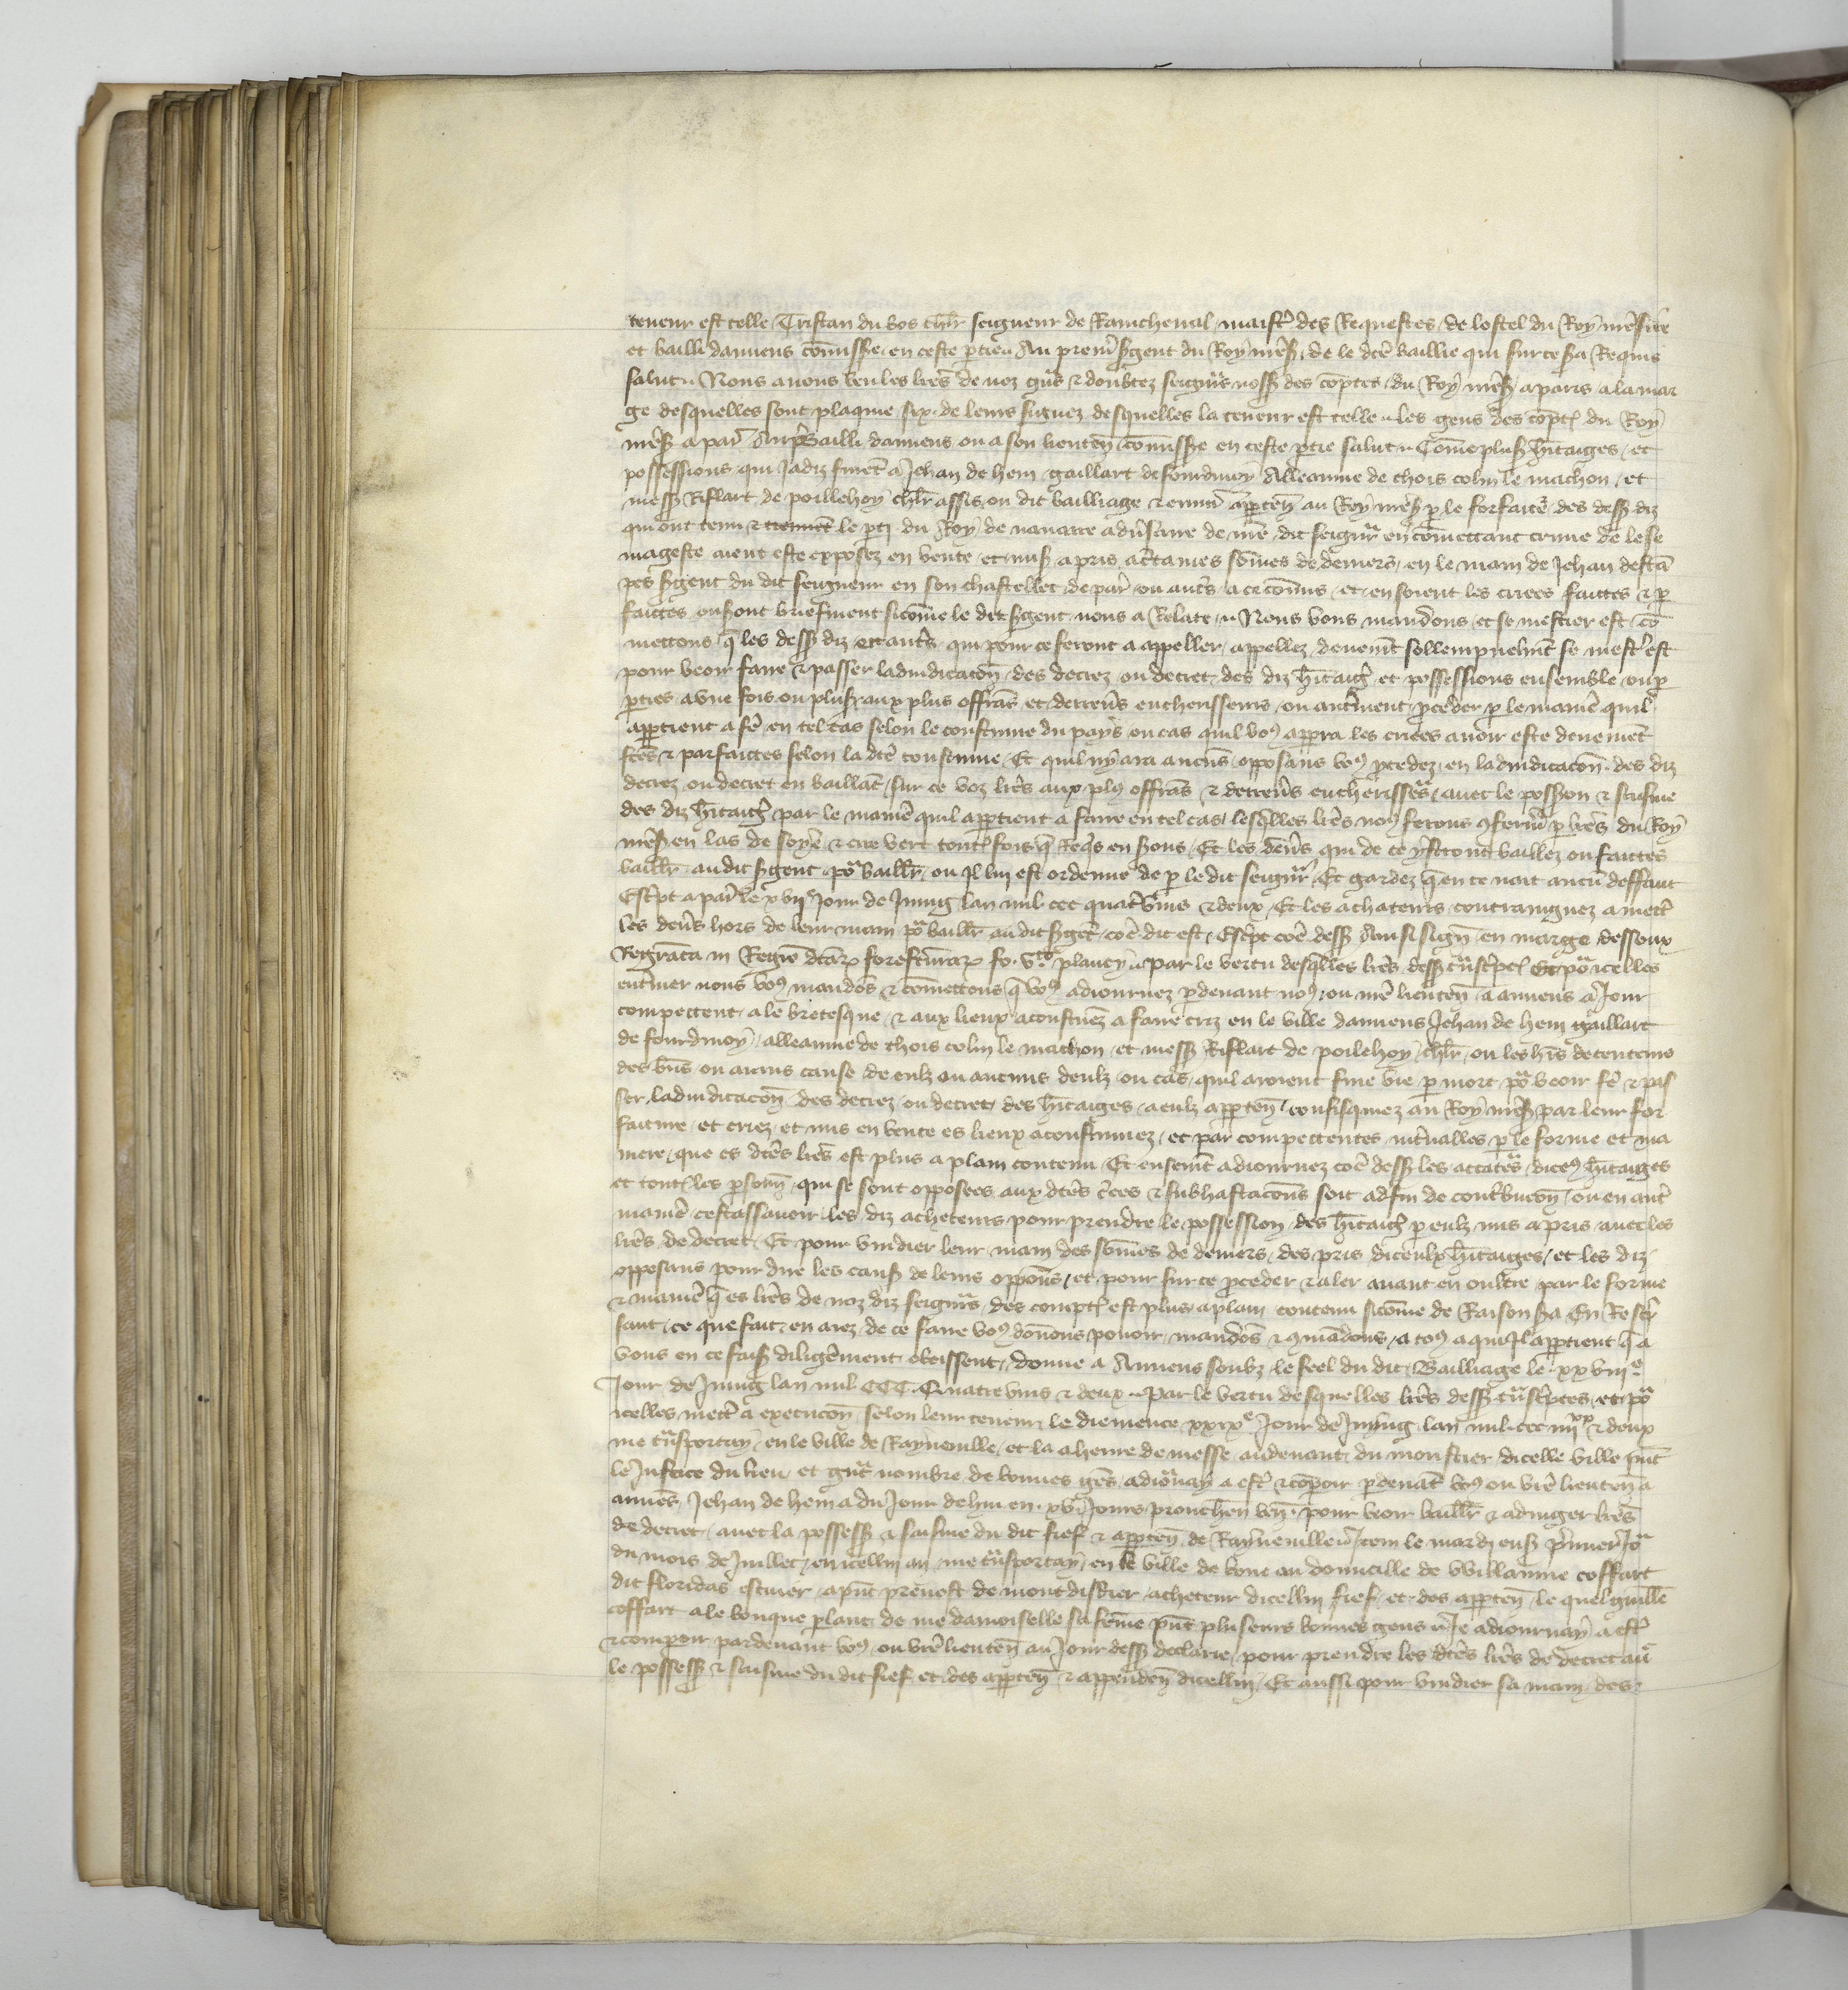 teneur est telle Tristan du bos chlr seigneur de Raincheual maistr des Requestes de lostel du Roy nrẽ sire
et bailli damiens cõmissre en ceste ptie Au premr sgent du Roy nrẽs de le dcẽ baillie qui sur ce sa Requis
salut Nous auons veu les lrẽs de noz grãs & doubtez seigrs noss des cõptes du Roy nrẽs a paris a la mar
ge desquelles sont plaquie six de leurs signez desquelles la teneur est telle les gens des cõptes du Roy
nrẽs a par Au bailli damiens ou a son lieutẽn cõmissre en ceste ptie salut Cõme plus hitaiges et
possessions qui Jadiz furent a Jehan de hem gaillart de fourdrinoy Alleaume de thois colin le machon et
mess Riflart de poillehoy chlr assis ou dit bailliage & enuirõ apptẽn au Roy nrẽs p le forfaitẽ des dess diz
qui ont tenu & tiennent le pti du Roy de nauarre aduersaire de nrẽ dit seigr en cõmettant crime de lese
mageste aient este exposez en vente et mis a pris a ctaines sõmes de deniers en le main de Jehan destã
pes sgent du dit seigneur en son chastellet de par ou autrs a ce cõmis et en soient les criees faictes & p
faictes ou sont briefment sicõme le dit sgent nous a Relate Nous vous mandons et se mestier est cõ
mettons q les dess diz et autrs qui pour ce feront a appeller appellez deuemt sollempnelmt se mestr est
pour veoir faire & passer ladiudicacõn des decrez ou decret des diz hitaigs et possessions ensemble ou p
pties a vne fois ou plus aux plus offrãs et derreñs encherisseurs ou autrment pceder p le maniẽ quil
appartient a fẽ en tel cas selon le coustume du pays ou cas quil vo9 apprra les criees auoir este deuemẽt
fctẽs & parfaictes selon la dcẽ coustume Et quil ny ara aucuns opposans vo9 pcedez en ladiudicacõn des diz
decrez ou decret en baillãt sur ce voz lrẽs aux pl9 offrãs & derreñs encherissers auec le possion & saisine
des diz hitaigs par le maniẽ quil appartient a faire en tel cas lesqlles lrẽs no9 ferons 9fermr p lrẽs du Roy
nrẽs en las de soye & cire vert toutes fois q Reqs en sons Et les dñrs qui de ce ystront baillez ou faictes
baillr au dit sgent pr baillr ou Jl lui est ordenne de p le dit seigr Et gardez qen ce nait aucũ deffaut
Escpt a par le xvije Jour de Juing lan mil ccc quatrvins & deux Et les achateurs contraingniez a mettr
les dñrs hors de leur main pr baillr au dit sgẽt cõe dit est Escpt cõe dess Ainsi signẽ en marge dessoux
par le vertu desqlles lrẽs dess trãscptes et pr icelles
entriner nous vo9 mandõs & cõmettons q vo9 adiournez pdeuant no9 ou nrẽ lieutẽn a amiens a Jour
competent a le bretesque & aux lieux acoustuẽz a faire criz en le ville damiens Jehan de hem gaillart
de fourdrinoy alleaume de thois colin le machon et mess Riflart de poilehoy chlr ou les hirs detenteurs
des biñs ou aians cause de eulz ou aucuns deulz ou cas quil aroient fine vie p mort pr veoir fẽ & pas
ser ladiudicacõn des decrez ou decret des hitaiges a eulz apptẽn confisquiez au Roy nrẽs par leur for
faiture et criez et mis en vente es lieux acoustumez et par competentes interualles p le forme et ma
niere que es dcẽs lrẽs est plus a plain contenu Et ensemt adiournez cõe dess les accaters dices hitaiges
et toutes les psonñ qui se sont opposees aux dcẽs criees & subhastacõns soit adfin de contribucõn ou en autr
maniẽ cestassauoir les diz acheteurs pour prendre le possession des hitaigs p eulz mis a pris auec les
lrẽs de decret Et pour vuidier leur main des sõmes de deniers des pris diceulx hitaiges et les diz
opposans pour dire les causs de leurs opposiõns et pour sur ce pceder & aler auant en oultre par le forme
& maniẽ q es lrẽs de noz diz seigrs des comptes est plus a plain contenu sicõme de Raison sa En Rescri
sant ce que fait en arez de ce faire vo9 donõns pouoir mandõs & 9mãdons a to9 a qui Jl apptient q a
vous en ce faiss diligẽment obeissent donne a Amiens soubz le seel du dit Bailliage le xxviije
Jour de Juing lan mil CCC Quatre vins & deux Par le vertu desquelles lrẽs dess trãscptes et pr
icelles mettr a execucõn selon leur teneur le diemence xxixe Jour de Juing lan mil ccc iiijxx & deux
me trãsportay en le ville de Rayneuille et la a heure de messe au deuant du moustier dicelle ville pñt
le Justice du lieu et grãt nombre de bonnes gẽs adiournay a estr & cõpoir pdeuãt vo9 ou vrẽ lieutẽn a
amiẽs Jehan de hem a du Jour dehui en xv Jours prouchẽn vẽn pour veoir baillr & adiuger lrẽs
de decret auec la possess & saisine du dit fief & apptẽn de Rayneuille Jtem le mardi enss pmier Jor
du mois de Juillet en icelui an me trãsportay en le ville de boue au domicille de Willaume coffart
dit floridas escuier a pñt preuost de mondisdier acheteur dicelui fief et des apptẽn le quel guille
coffart a le bouque plant de me damoiselle sa fẽme pñt pluseurs bonnes gens Je adiournay a estr
& compoir pardeuant vo9 ou vrẽ lieutẽn au Jour dess declarie pour prendre les dcẽs lrẽs de decret auec
le possess & saisine du dit fief et des apptẽn & appendẽn dicellui Et aussi pour vuidier sa main des